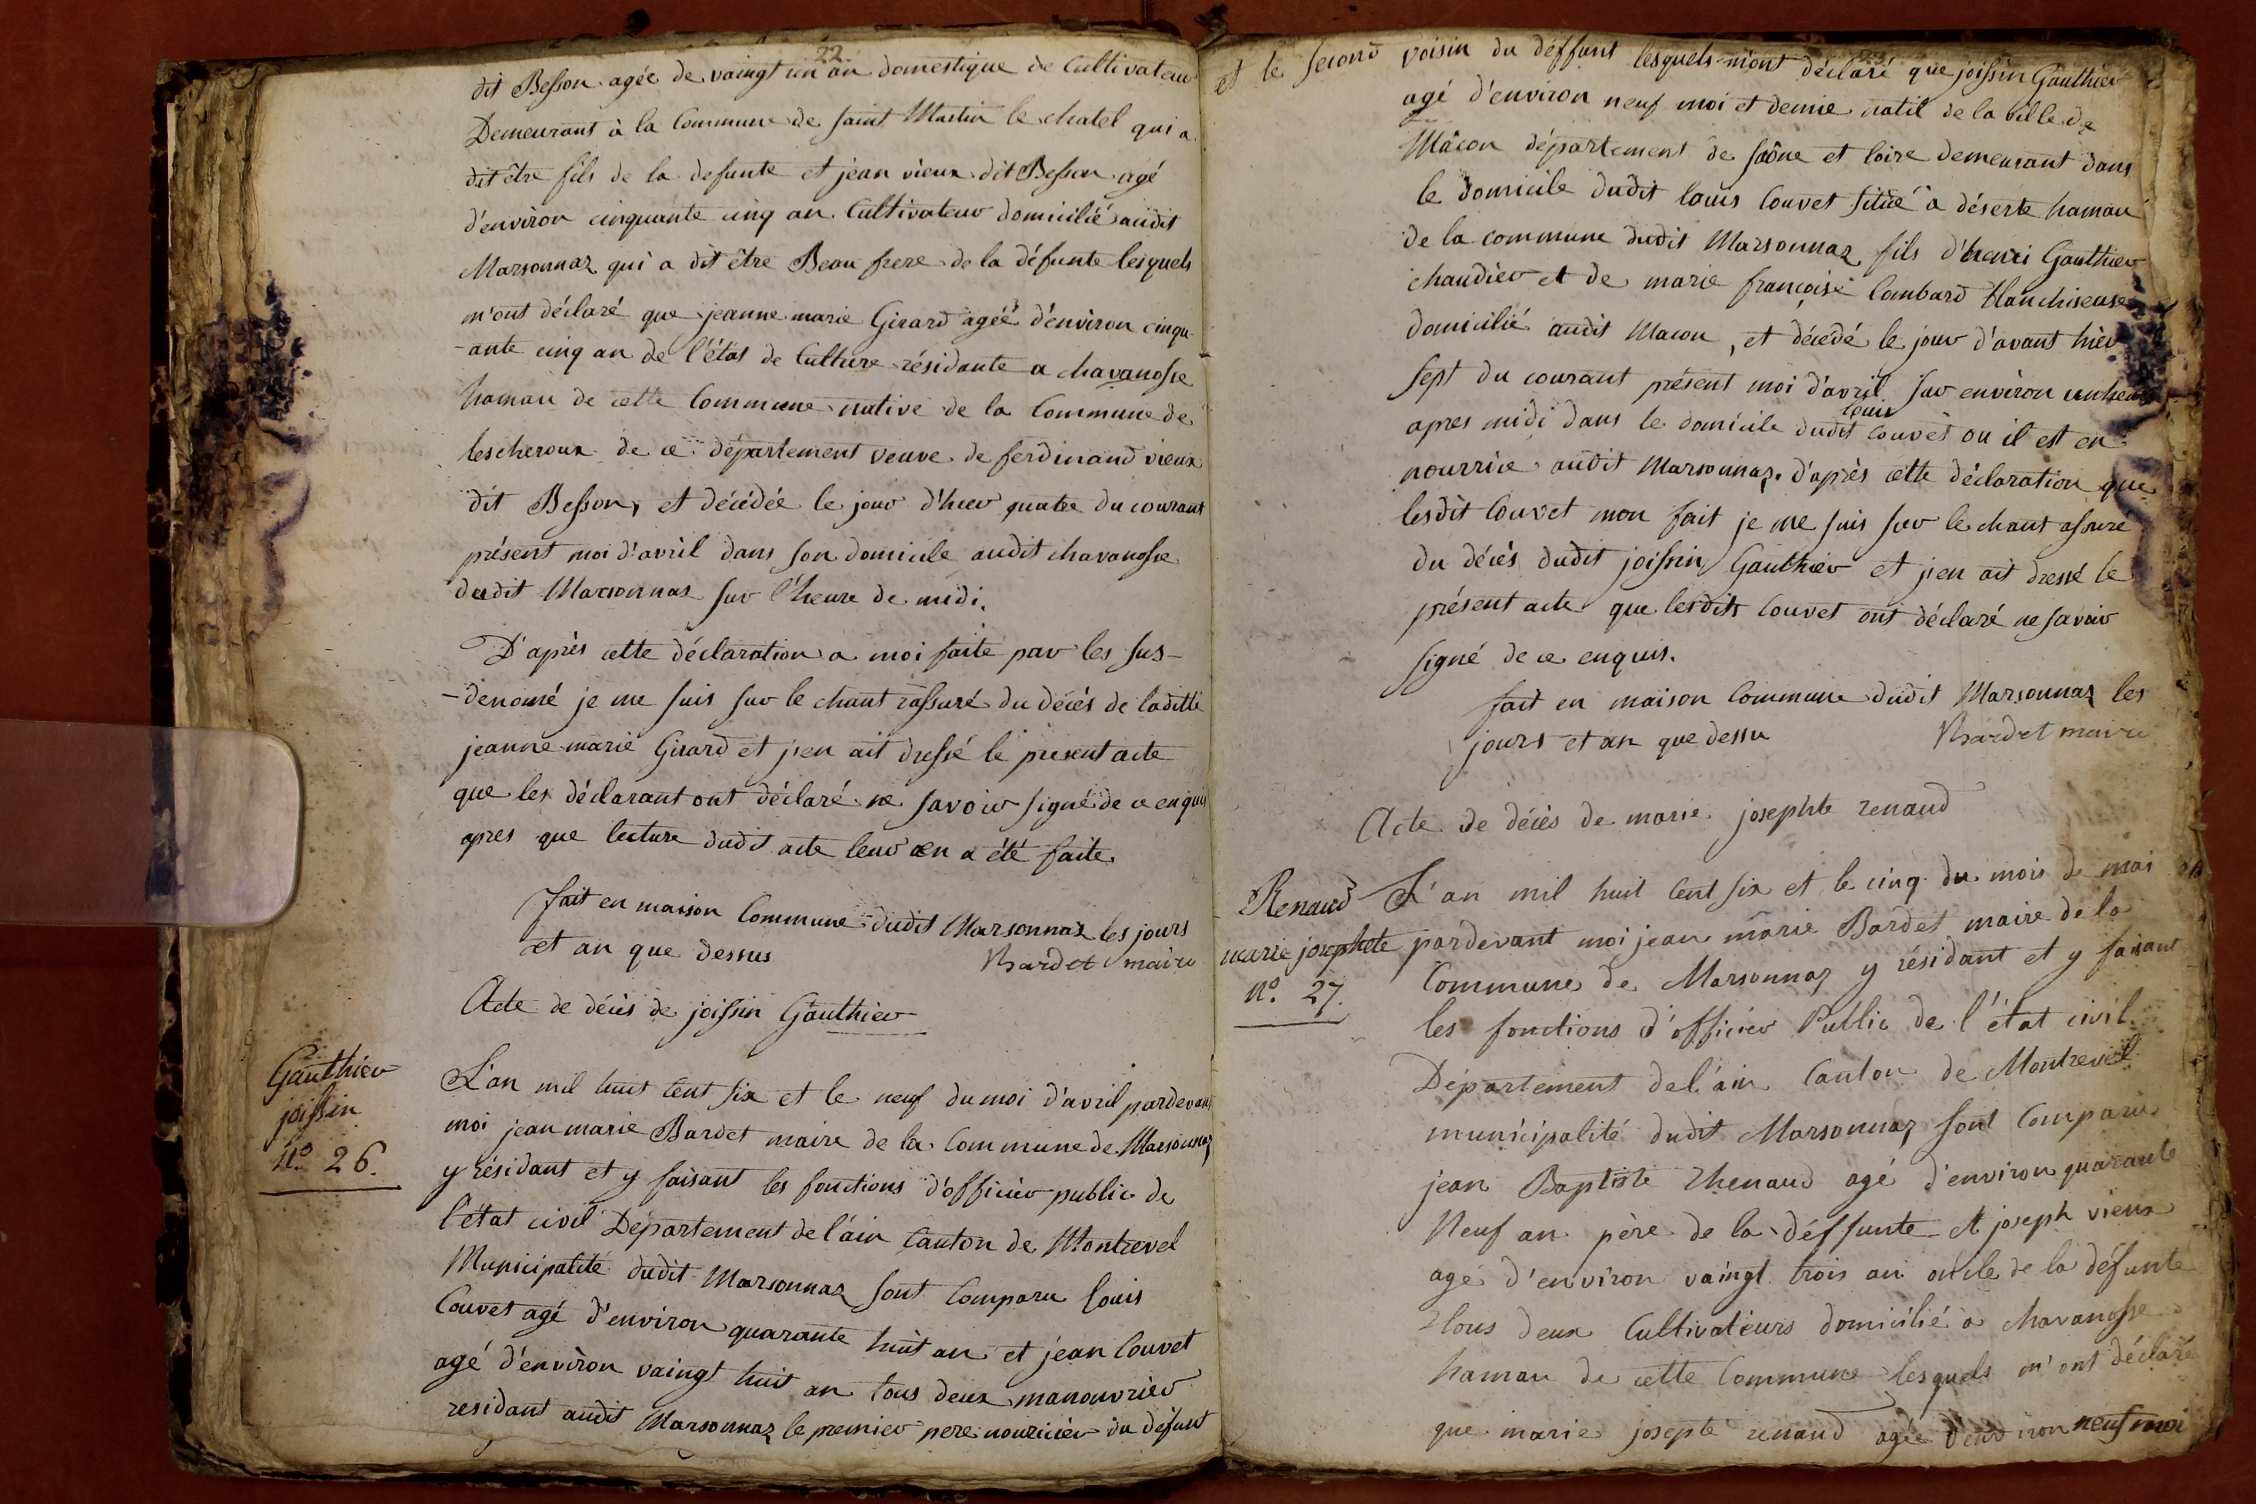 22
dit Besson agée de vaingt un an domestique de Cultivateur
Demeurant à la Commune de saint Martin le chatel qui a
dit être fils de la defunte et jean vieux dit Besson agé
d'environ cinquante cinq an Cultivateur domicilié audit
Marsonnaz qui a dit être Beau frere de la défunte lesquels
m'ont déclaré que jeanne marie Girard agéé d'environ cinqu-
-ante cinq an de l'état de Culture résidante a chavanosse
hamau de cette Commune native de la Commune de
lescheroux de ce département veuve de ferdinand vieux
dit Besson, et décédée le jour d'hier quatre du courant
présent moi d'avril dans son domicile audit chavanosse
dudit Marsonnas sur l'heure de midi.
D'après cette déclaration a moi faite par les sus-
-denomé je me suis sur le chant rassuré du décés de laditte
jeanne marie Girard et j'en ait dressé le present acte
que les déclarant ont déclaré ne savoir signé de ce enquis
apres que lecture dudit acte leur en a été faite.
fait en maison Commune dudit Marsonnaz les jours
et an que dessus Bardet maire
Acte de décés de joissin Gauthier
Gauthier
joissin
N.º 26.
L'an mil huit cent six et le neuf du moi d'avril pardevant
moi jean marie Bardet maire de la Commune de Marsonnaz
y résidant et y faisant les fonctions d'officier public de
l'état civil Département de l'ain Canton de Montrevel
Municipalité dudit Marsonnaz sont Comparu louis
Couvet agé d'environ quarante huit an et jean Couvet
agé d'environ vaingt huit an tous deux manouvrier
residant audit Marsonnaz le premier pere nouricier du défunt
et le second voisin du déffunt lesquels m'ont déclaré que joissin Gauthier
agé d'environ neuf moi et demie natif de la ville de
Mâcon département de saône et loire demeurant dans
le domicile dudit louis Couvet situé à déserte hamau
de la commune dudit Marsonnaz fils d'henri Gauthier
chaudier et de marie françoise Lombard blanchiseuse
domicilié audit Macon, et décédé le jour d'avant hier
sept du courant présent moi d'avril sur environ unheure
apres midi dans le domicile dudit louis couvet ou il est en
nourrice audit Marsonnaz. d'après cette déclaration que
lesdit Couvet mon fait je me suis sur le chant assuré
du décés dudit joissin Gauthier et j'en ait dressé le
présent acte que lesdits Couvet ont déclaré ne savoir
signé de ce enquis.
fait en maison Commune dudit Marsonnaz les
jours et an que dessu Bardet maire
Acte de décés de marie josephte renaud
Renaud
marie josephte
nº. 27.
L'an mil huit cent six et le cinq du mois de mai
pardevant moi jean marie Bardet maire de la
Commune de Marsonnaz y résidant et y faisant
les fonctions d'officier Public de l'état civil
Département de l'ain Canton de Montrevel
municipalité dudit Marsonnaz sont Comparu
jean Baptiste Rhenaud agé d'environ quarante
Neuf an père de la déffunte et joseph vieux
agé d'environ vaingt trois an oncle de la défunte
tous deux Cultivateurs domicilié a chavanosse
hamau de cette Commune lesquels m'ont déclaré
que marie josepte renaud agée d'environ neuf moi